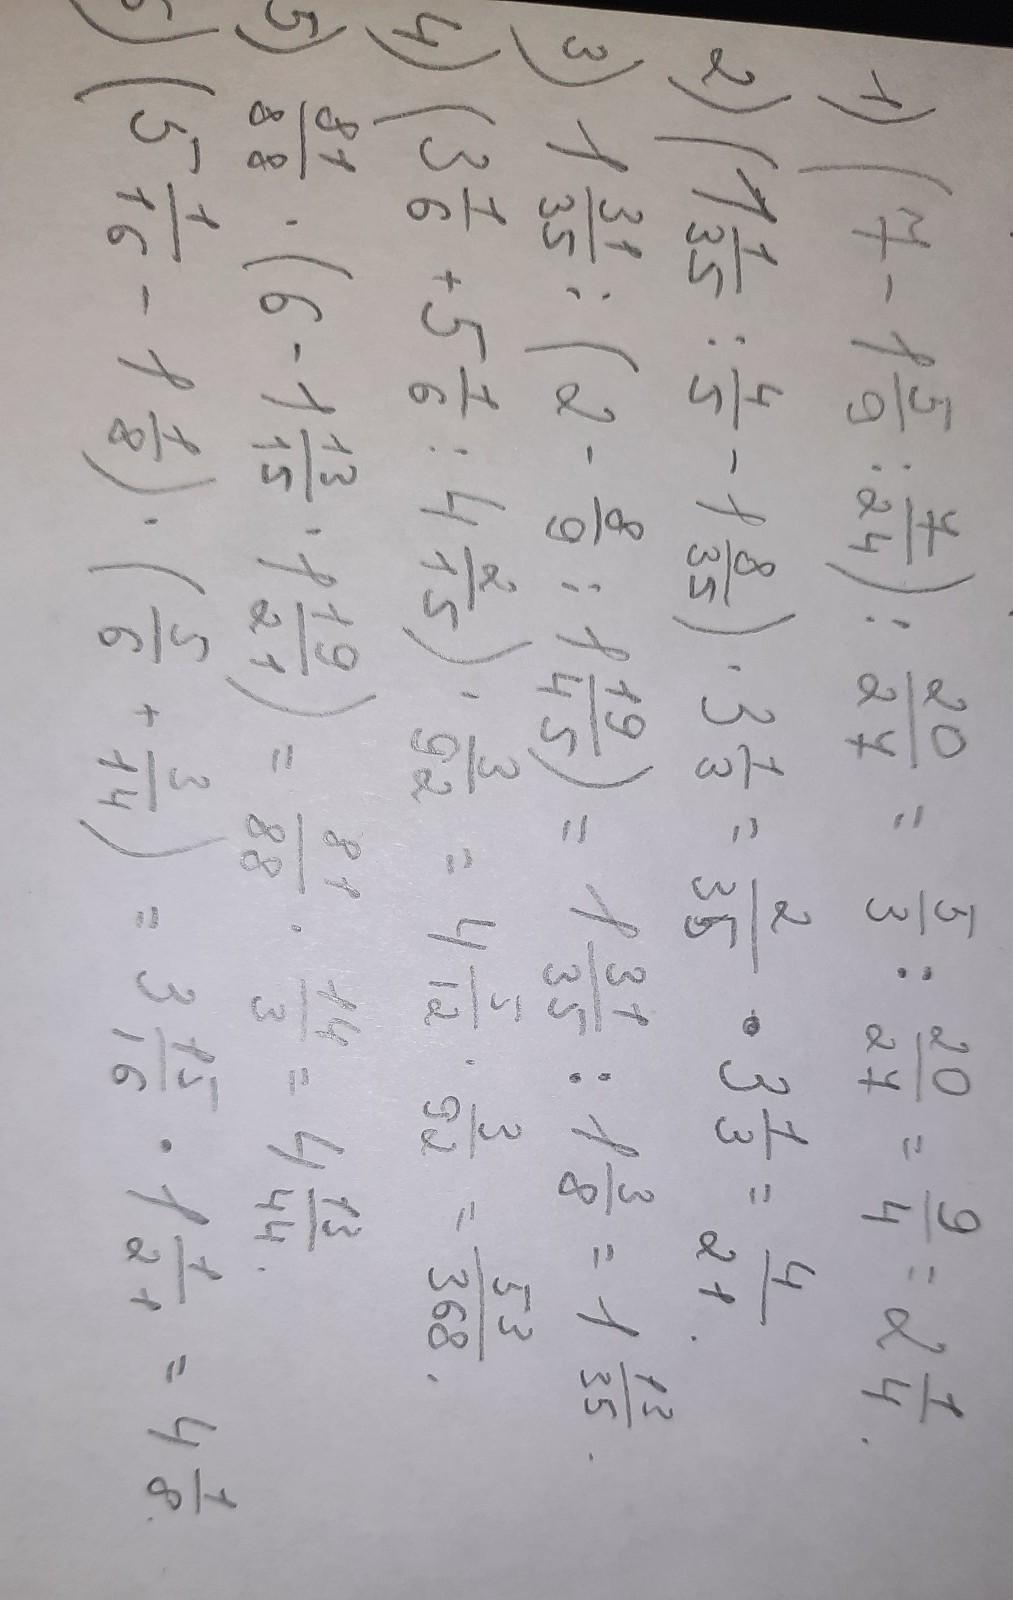 1) (7 - 1 5/9 : 7/24) : 20/27 = 5/3 : 20/27 = 9/4 = 2 1/4.
2) (1 1/35 : 4/5 - 1 8/35) · 3 1/3 = 2/35 · 3 1/3 = 4/21.
3) 1 31/35 : (2 - 8/9 : 1 19/45) = 1 31/35 : 1 3/8 = 1 13/35.
4) (3 1/6 + 5 1/6 : 4 2/15) · 3/92 = 4 5/12 · 3/92 = 53/368.
5) 81/88 · (6 - 1 13/15 · 1 19/21) = 81/88 · 14/3 = 4 13/44.
6) (5 1/16 - 1 1/8) · (5/6 + 3/14) = 3 15/16 · 1 1/21 = 4 1/8.